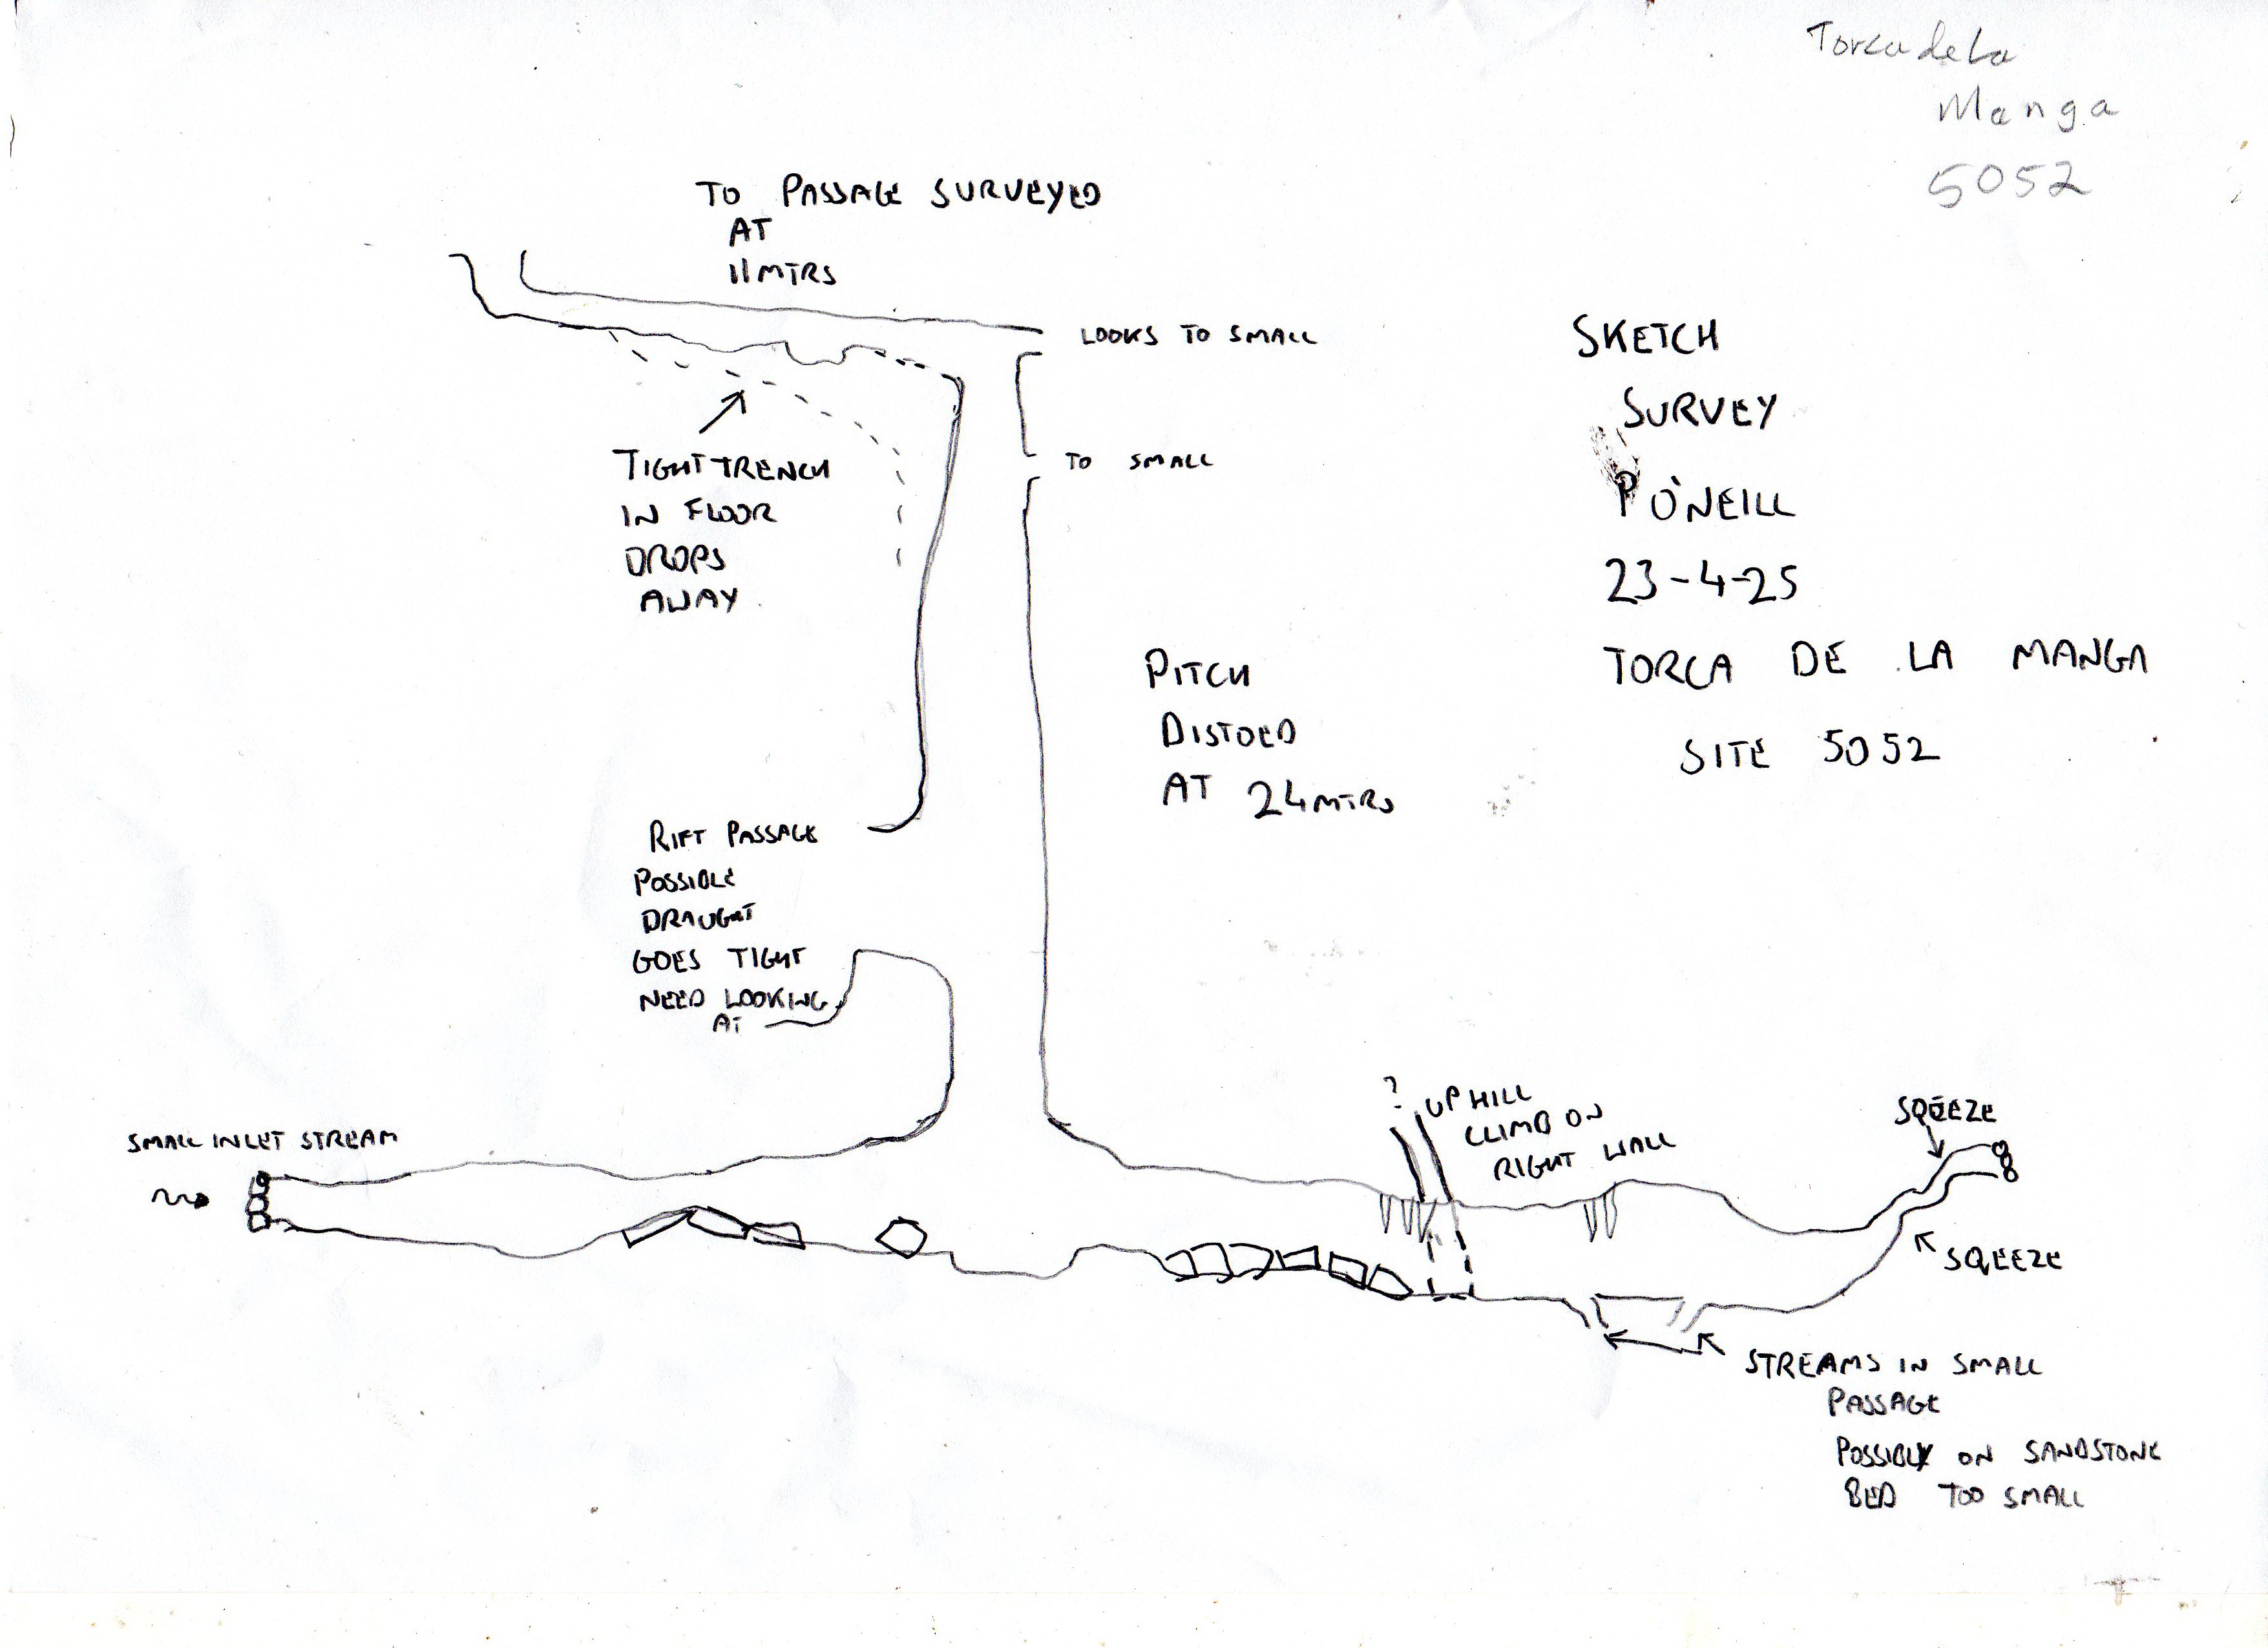 Torca de La
Manga
5052
TO PASSAGE SURVEYED
AT
11MTRS
LOOKS TO SMALL
TO SMALL
TIGHT TRENCH
IN FLOOR
DROPS
AWAY.
SKETCH
SURVEY
P O'NEILL
23-4-25
TORCA DE LA MANGA
SITE 5052
PITCH
DISTOED
AT 24MTRS
RIFT PASSAGE
POSSIBLE
DRAUGHT
GOES TIGHT
NEED LOOKING
AT
SMALL INLET STREAM
? UP HILL
CLIMB ON
RIGHT WALL
SQEEZE
SQEEZE
STREAMS IN SMALL
PASSAGE
POSSIBLY ON SANDSTONE
BED TOO SMALL